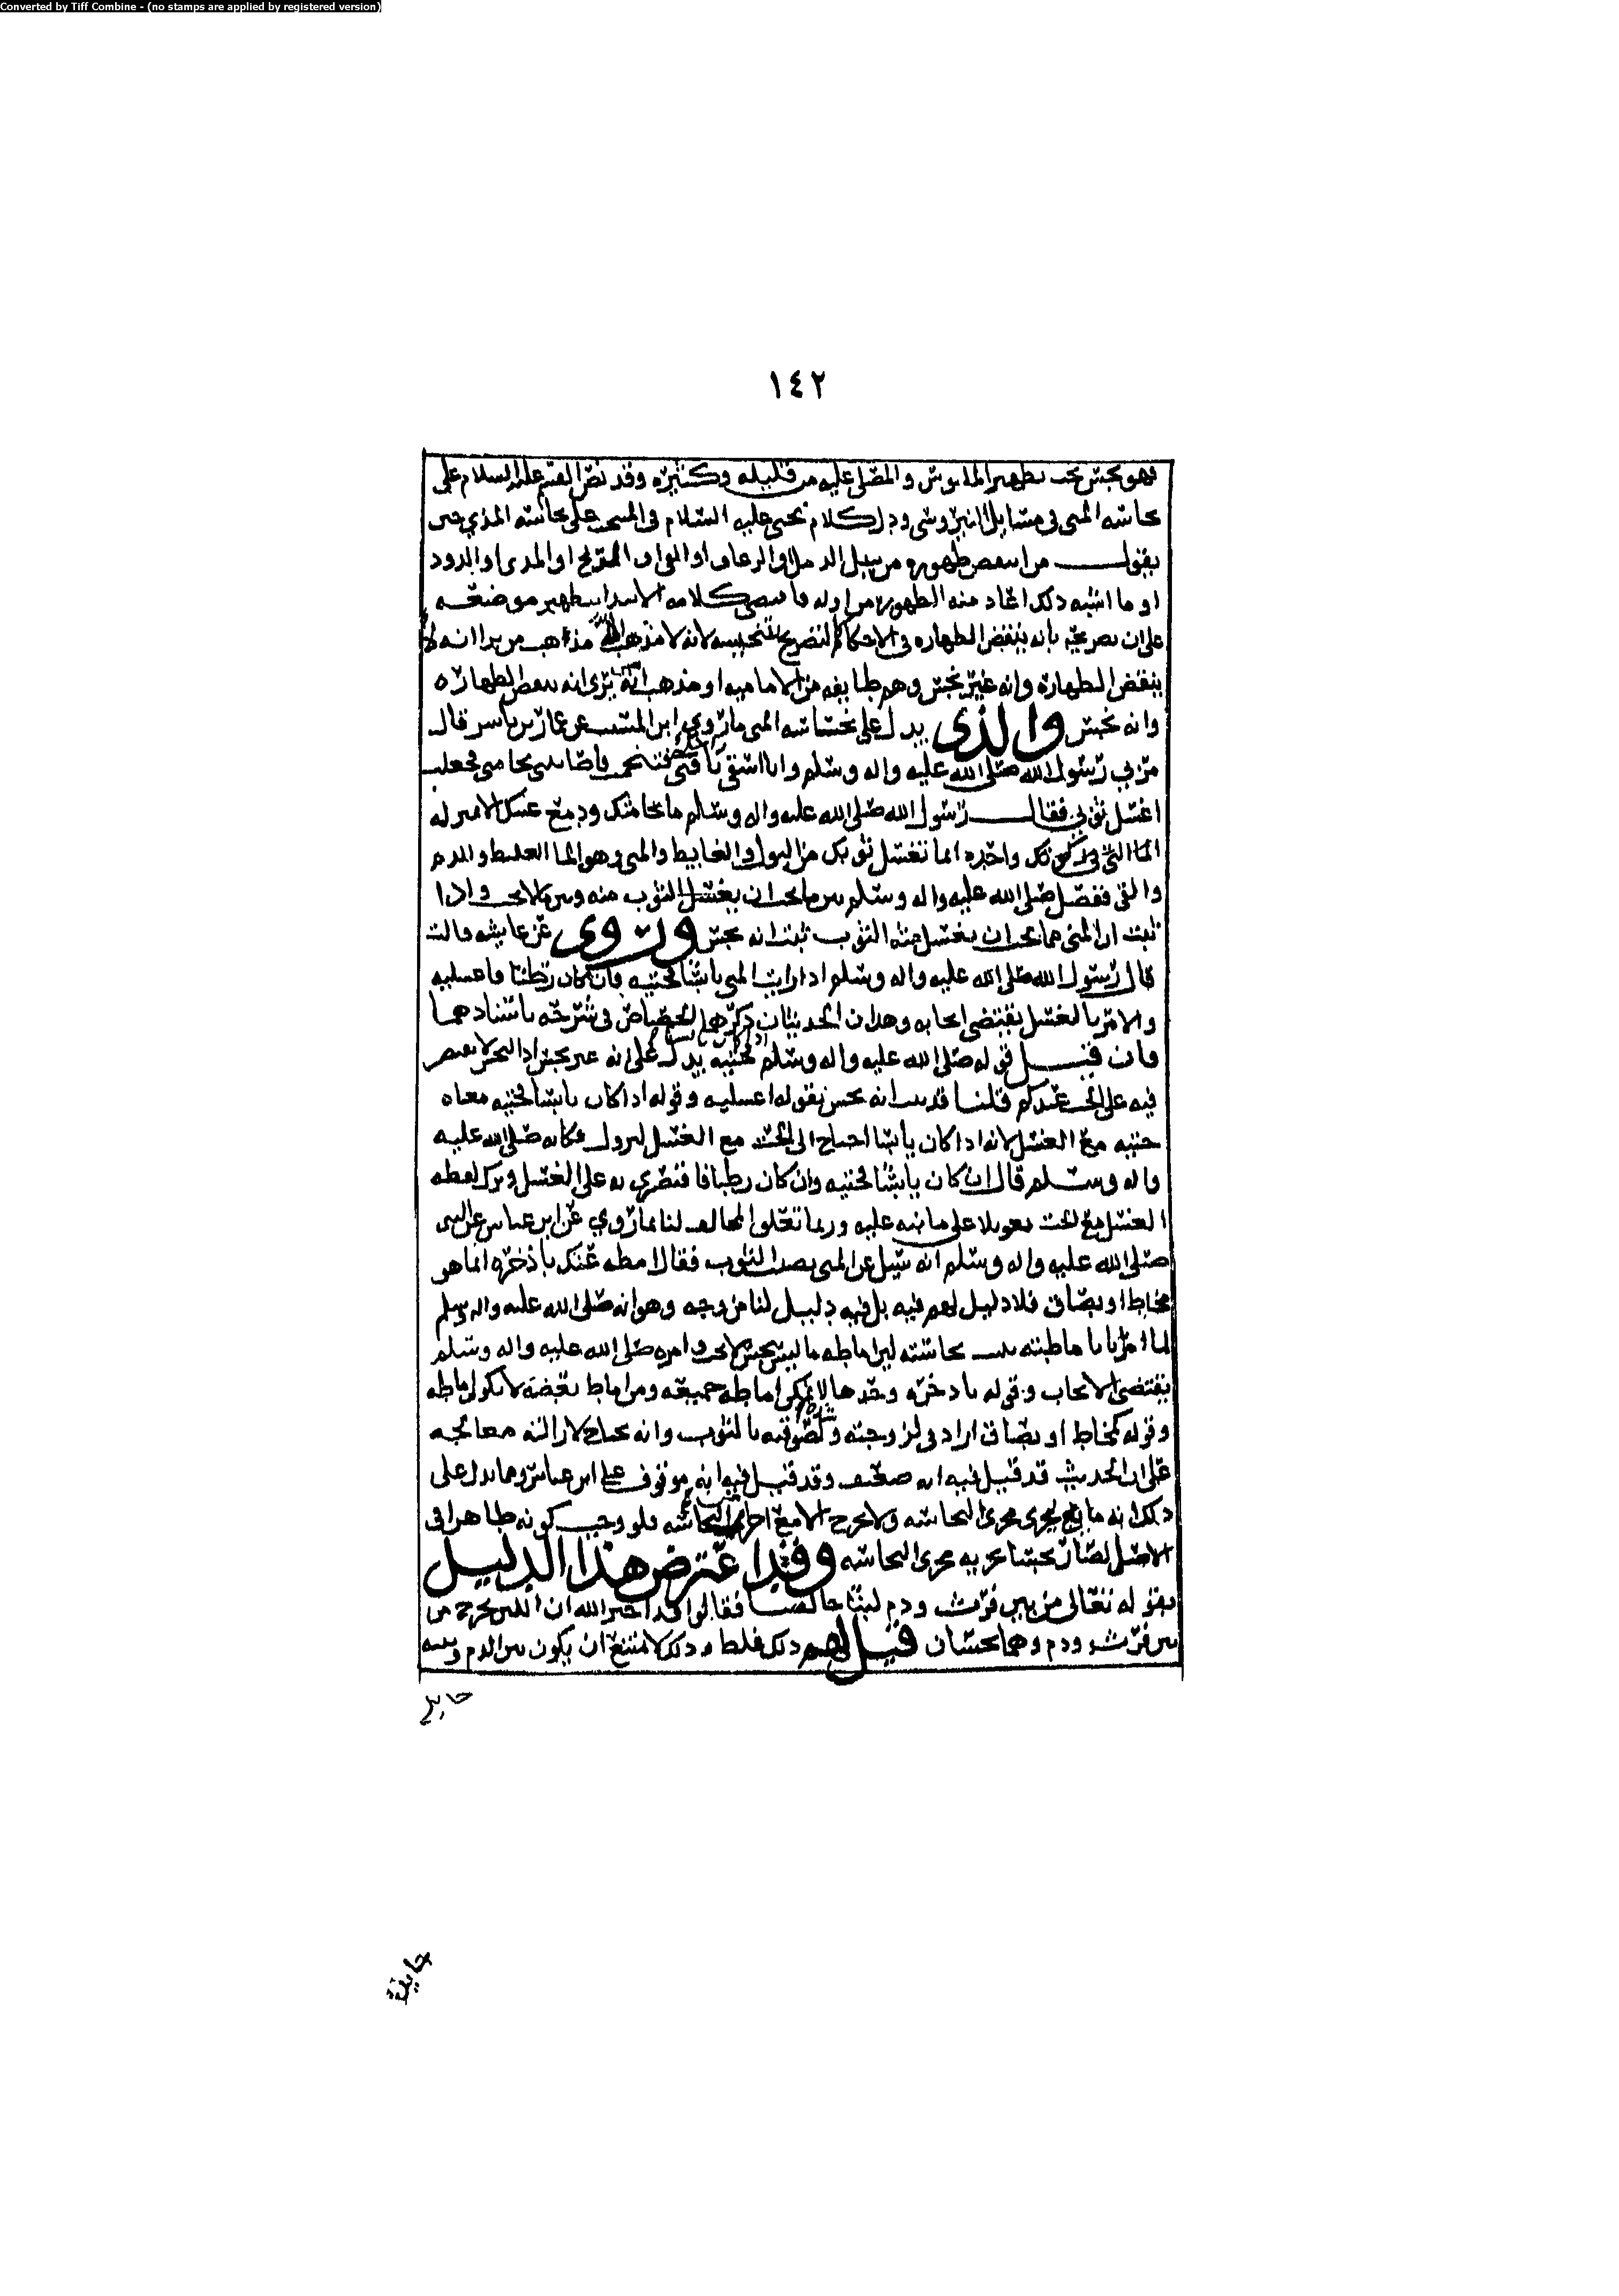 Converted by Tiff Combine - (no stamps are applied by registered version)
١٤٢
فهو نجس يجب تطهير الملبوس والمصلى عليه من قليله وكثيره وقد نص القسم عليه السلام على
نجاسة المني في مسايل النيروسي ودل كلام يحيى عليه السلام في المنتخب على نجاسة المذي حين
يقول من انتقض طهوره من سبل الدمل او الرعاف او القي او القيح او المذي او الدود
او ما اشبه ذلك اعاد منه الطهور من اوله فاقتضى كلامه الابتدا بتطهير موضعه
على ان تصريحه بانه ينقض الطهاره في الاحكام تصريح بتنجيسه لانه لا مذهب الا مذهب من يرا انه لا
ينقض الطهارة وانه غير نجس وهم طايفه من الاماميه او مذهب من يرى انه ينقض الطهاره
وانه نجس والذي يدل على نجاسة المني ما روي ابن المسيب عن عمار بن ياسر قال
مر بي رسول الله صلى الله عليه واله وسلم وانا اسقي ناقتي فتنخمت فاصابتني نخامتي فجعلت
اغسل ثوبي فقال رسول الله صلى الله عليه واله وسلم ما نخامتك ودموع عينيك الا بمنزله
الما الذي في ركوتك واحده انما تغسل ثوبك من البول والغايط والمني وهو الما الغليظ والدم
والقي ففصل صلى الله عليه واله وسلم بين ما يجب ان يغسل الثوب منه وبين ما لا يجب واذا
ثبت ان المني مما يجب ان يغسل منه الثوب ثبت انه نجس وروي عن عايشه قالت
قال رسول الله صلى الله عليه واله وسلم اذا رايت المني يابسا فحتيه فان كان رطبا فاغسليه
والامر بالغسل يقتضي ايجابه وهذان الحديثان ذكرهما الجصاص في شرحه باسنادهما
فان قيل قوله صلى الله عليه واله وسلم اذا كان يابسا فحتيه يدل على انه غير نجس اذ النجس لا يقتصر
فيه على الحت عندكم قلنا قد بينا انه نجس بقوله اغسليه وقوله اذا كان يابسا فحتيه معناه
حتيه مع الغسل لانه اذا كان يابسا احتاج الى الحت مع الغسل ليزول فكانه صلى الله عليه
واله وسلم قال ان كان يابسا فحتيه وان كان رطبا فاقتصري به على الغسل وترك لفظه
الغسل مع الحت تعويلا على ما نبه عليه وربما تعلق المخالف لنا بما روي عن ابن عباس عن النبي
صلى الله عليه واله وسلم انه سيل عن المني يصيب الثوب فقال امطه عنك باذخره انما هو
مخاط او بصاق فلا دليل لهم فيه بل فيه دليل لنا من وجه وهو انه صلى الله عليه واله وسلم
لما امر باماطته ثبت نجاسته لان اماطه ما ليس بنجس لا تجب وامره صلى الله عليه واله وسلم
يقتضي الايجاب وقوله باذخره وحدها لا يمكن اماطه جميعه ومن اماط بعضه لا يكون اماطه
وقوله كمخاط او بصاق اراد في لزوجته وشده لصوقه بالثوب وانه يحتاج لازالته معالجه
على ان الحديث قد قيل فيه انه ضعيف وقد قيل فيه انه موقوف على ابن عباس ومما يدل على
ذلك انه مايع يجري مجرى النجاسه ولا يخرج الا مع اجزا من النجاسه فلو وجب كونه طاهرا في
الاصل لصار نجسا بجريه مجرى النجاسه وقد اعترض هذا الدليل
بقوله تعالى من بين فرث ودم لبنا خالصا فقالوا قد اخبر الله ان اللبن يخرج من
بين فرث ودم وهما نجسان قيل لهم ذلك غلط وذلك لا يمتنع ان يكون بين الدم وبينه
حايل
حايلة